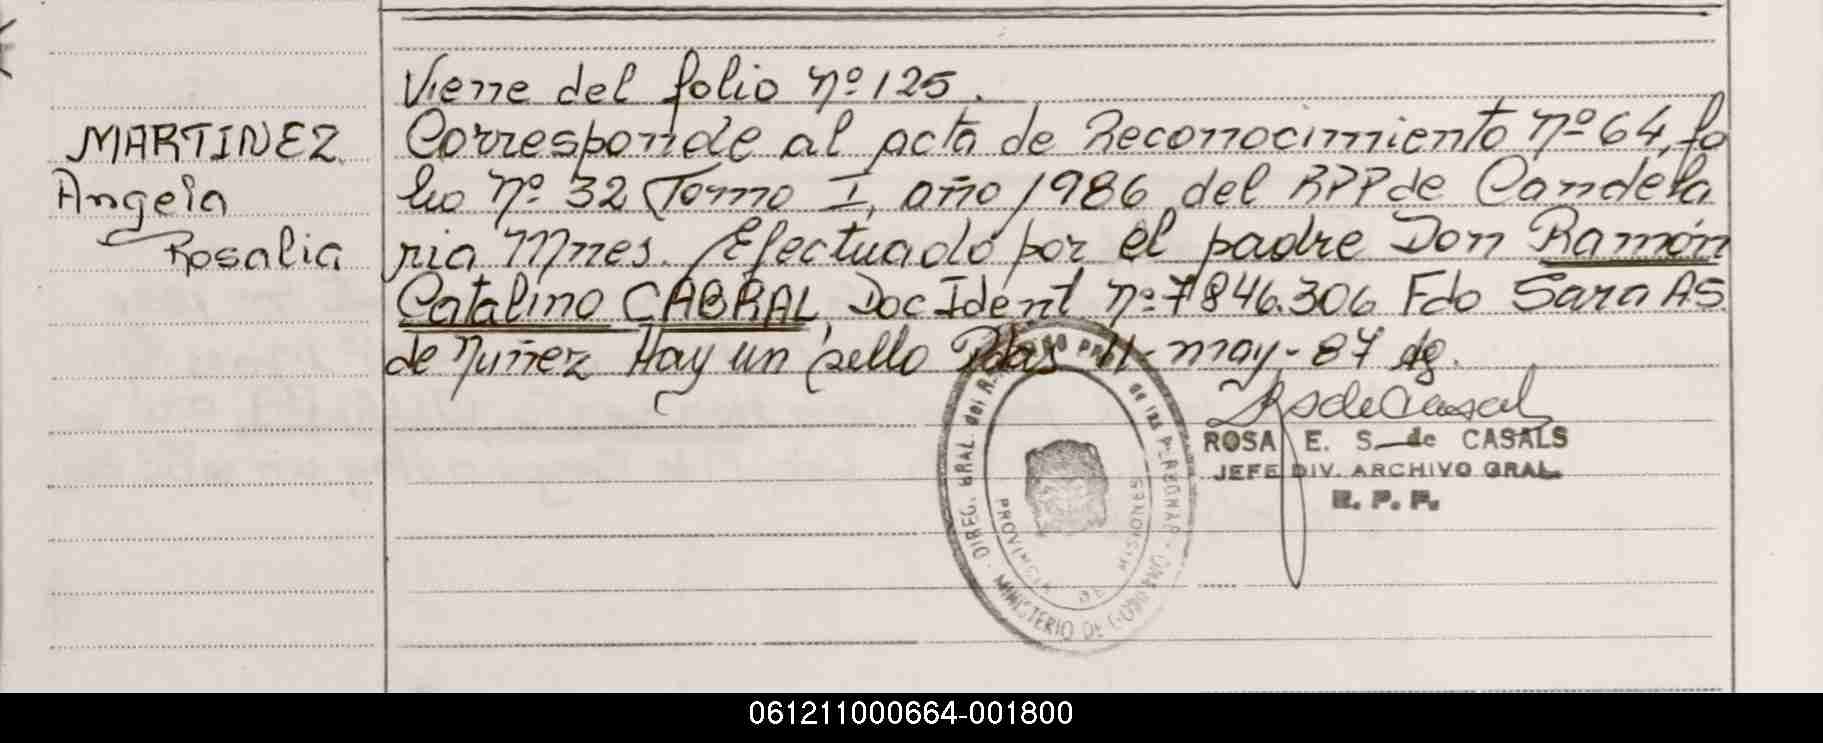 Viene del folio nº 125.
MARTINEZ
Angela
Rosalia
Corresponde al acta de Reconocimiento nº 64, fo
lio nº 32 Tomo I, año 1986 del RPP de Candela
ria Mnes. Efectuado por el padre Don Ramón
Catalino CABRAL, Doc Ident nº 7846.306 Fdo Sara A S
de Nuñez Hay un sello Pdas 11-may-87 dg.
ROSA E. S. de CASALS
JEFE DIV. ARCHIVO GRAL.
R. P. P.
DIREC. GRAL. del R. de las PERSONAS
MINISTERIO DE GOBIERNO
PROVINCIA DE MISIONES
061211000664-001800